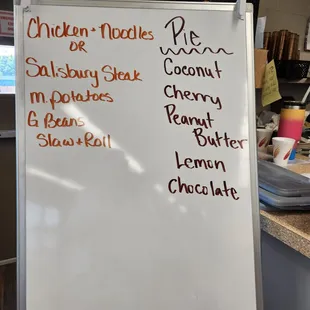 Chicken + Noodles
OR
Salisbury Steak
m.potatoes
G Beans
Slaw + Roll
Pie
Coconut
Cherry
Peanut
Butter
Lemon
Chocolate